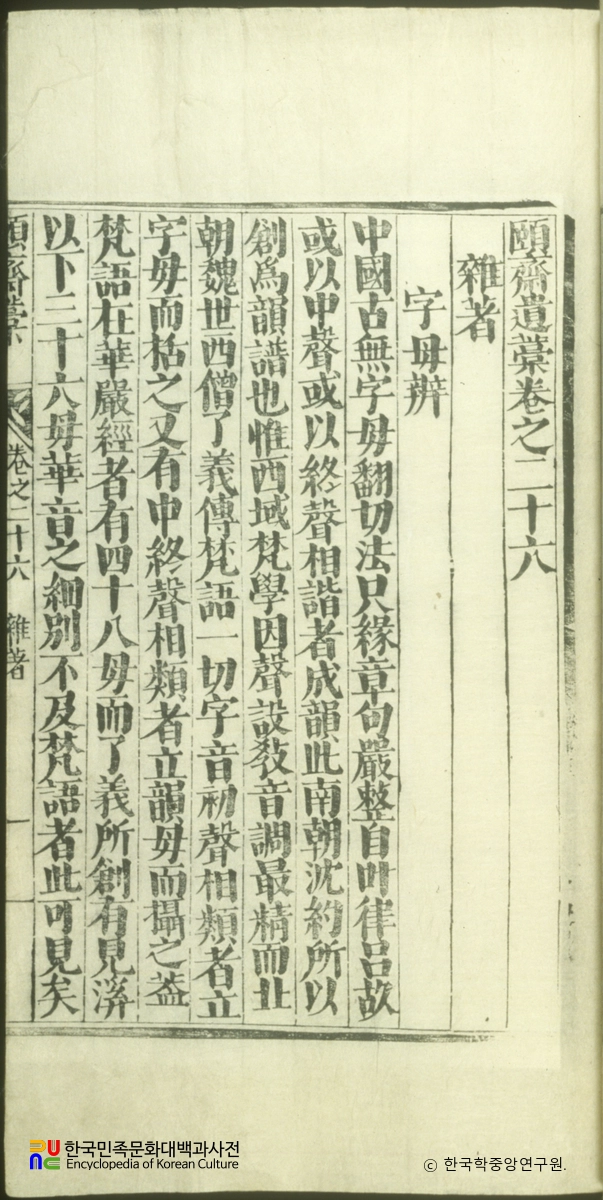 頤齋遺藁卷之二十六
雜著
字母辨
中國古無字母翻切法只緣章句嚴整自叶律呂故
或以中聲或以終聲相諧者成韻此南朝沈約所以
創爲韻譜也惟西域梵學因聲設敎音調最精而北
朝魏世西僧了義傳梵語一切字音初聲相類者立
字母而括之又有中終聲相類者立韻母而攝之盖
梵語在華嚴經者有四十八母而了義所創有見溪
以下三十六母華音之細別不及梵語者此可見矣
頤齋藁 卷之二十六 雜著 一
한국민족문화대백과사전
Encyclopedia of Korean Culture
© 한국학중앙연구원.